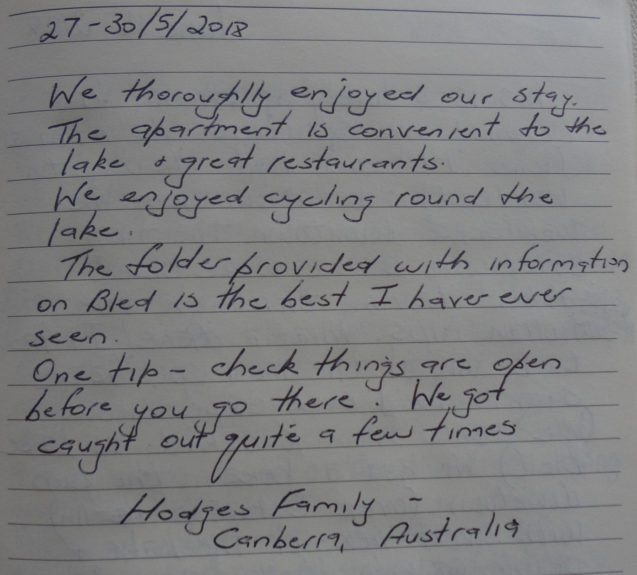 27-30/5/2018
We thoroughlly enjoyed our stay.
The apartment is convenient to the
lake & great restaurants.
We enjoyed cycling round the
lake.
The folder provided with information
on Bled is the best I haver ever
seen.
One tip - check things are open
before you go there. We got
caught out quite a few times
Hodges Family -
Canberra, Australia